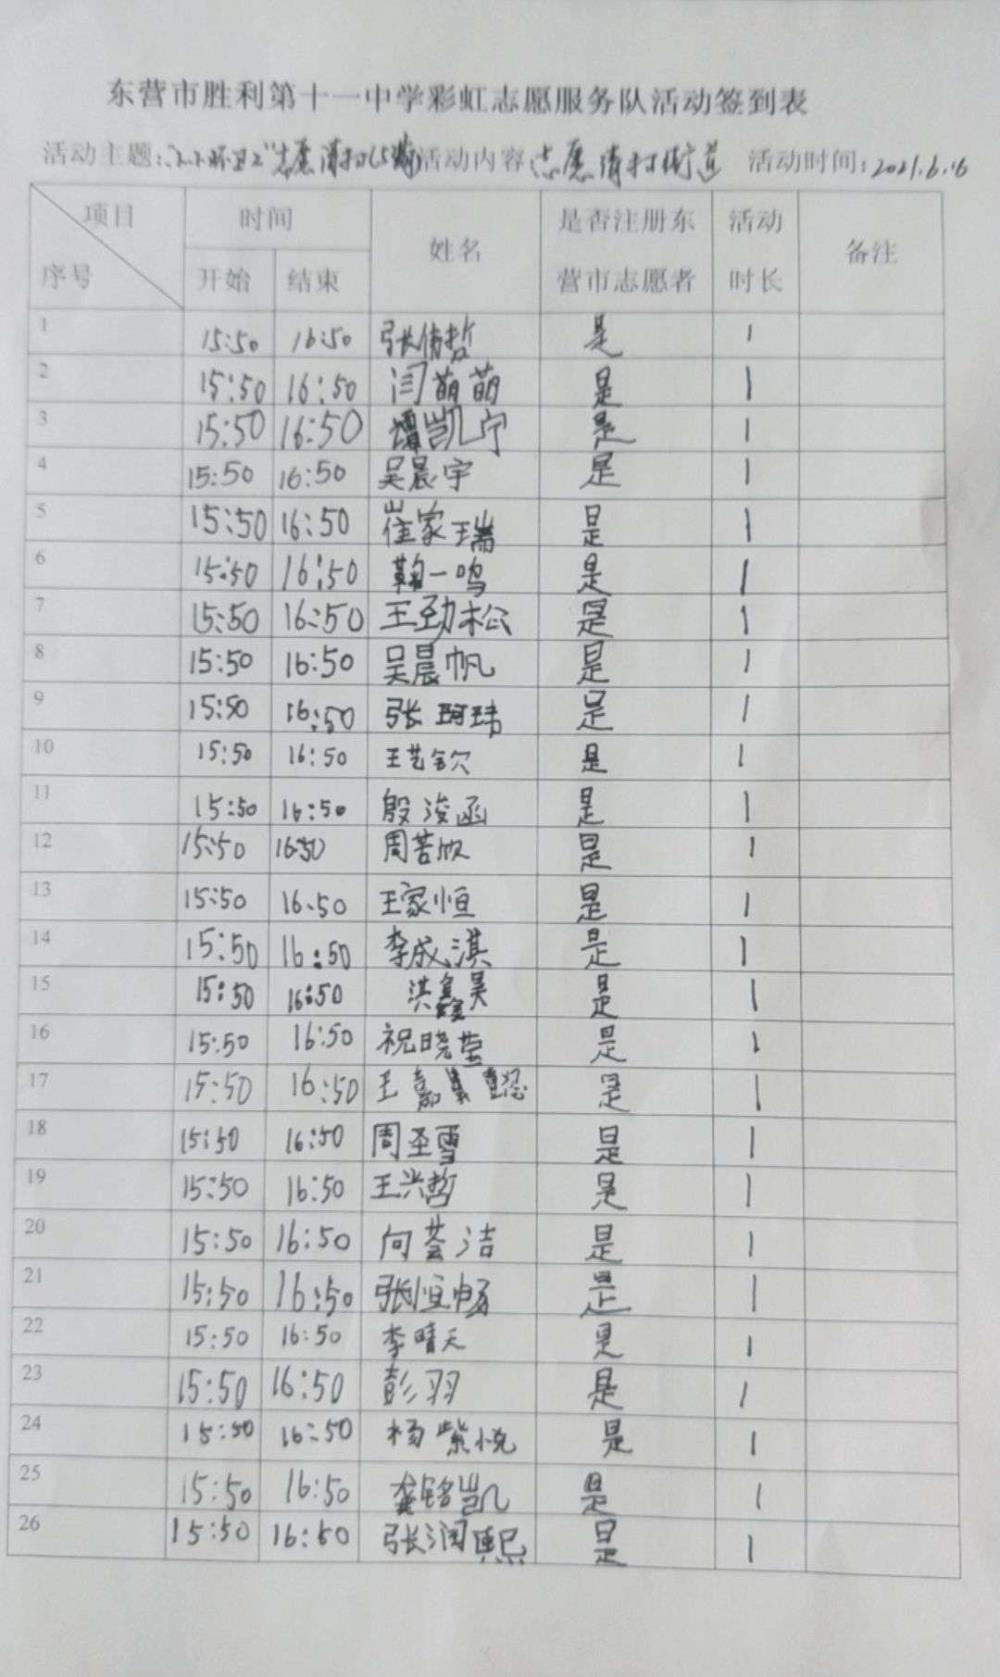 东营市胜利第十一中学彩虹志愿服务队活动签到表
活动主题: 志愿清扫 活动内容:志愿清扫街道 活动时间:2021.6.16
项目 时间 姓名 是否注册东营市志愿者 活动时长 备注
序号 开始 结束
1 15:50 16:50 张倩哲 是 1
2 15:50 16:50 闫萌萌 是 1
3 15:50 16:50 谭凯宁 是 1
4 15:50 16:50 吴晨宇 是 1
5 15:50 16:50 崔家瑞 是 1
6 15:50 16:50 鞠一鸣 是 1
7 15:50 16:50 王劲松 是 1
8 15:50 16:50 吴晨帆 是 1
9 15:50 16:50 张珂玮 是 1
10 15:50 16:50 王艺钦 是 1
11 15:50 16:50 殷浚函 是 1
12 15:50 16:50 周若欣 是 1
13 15:50 16:50 王家恒 是 1
14 15:50 16:50 李成淇 是 1
15 15:50 16:50 洪鑫昊 是 1
16 15:50 16:50 祝晓莹 是 1
17 15:50 16:50 王嘉 是 1
18 15:50 16:50 周圣雪 是 1
19 15:50 16:50 王兴哲 是 1
20 15:50 16:50 向荟洁 是 1
21 15:50 16:50 张恒畅 是 1
22 15:50 16:50 李晴天 是 1
23 15:50 16:50 彭羽 是 1
24 15:50 16:50 杨紫悦 是 1
25 15:50 16:50 龚铭凯 是 1
26 15:50 16:50 张润熙 是 1